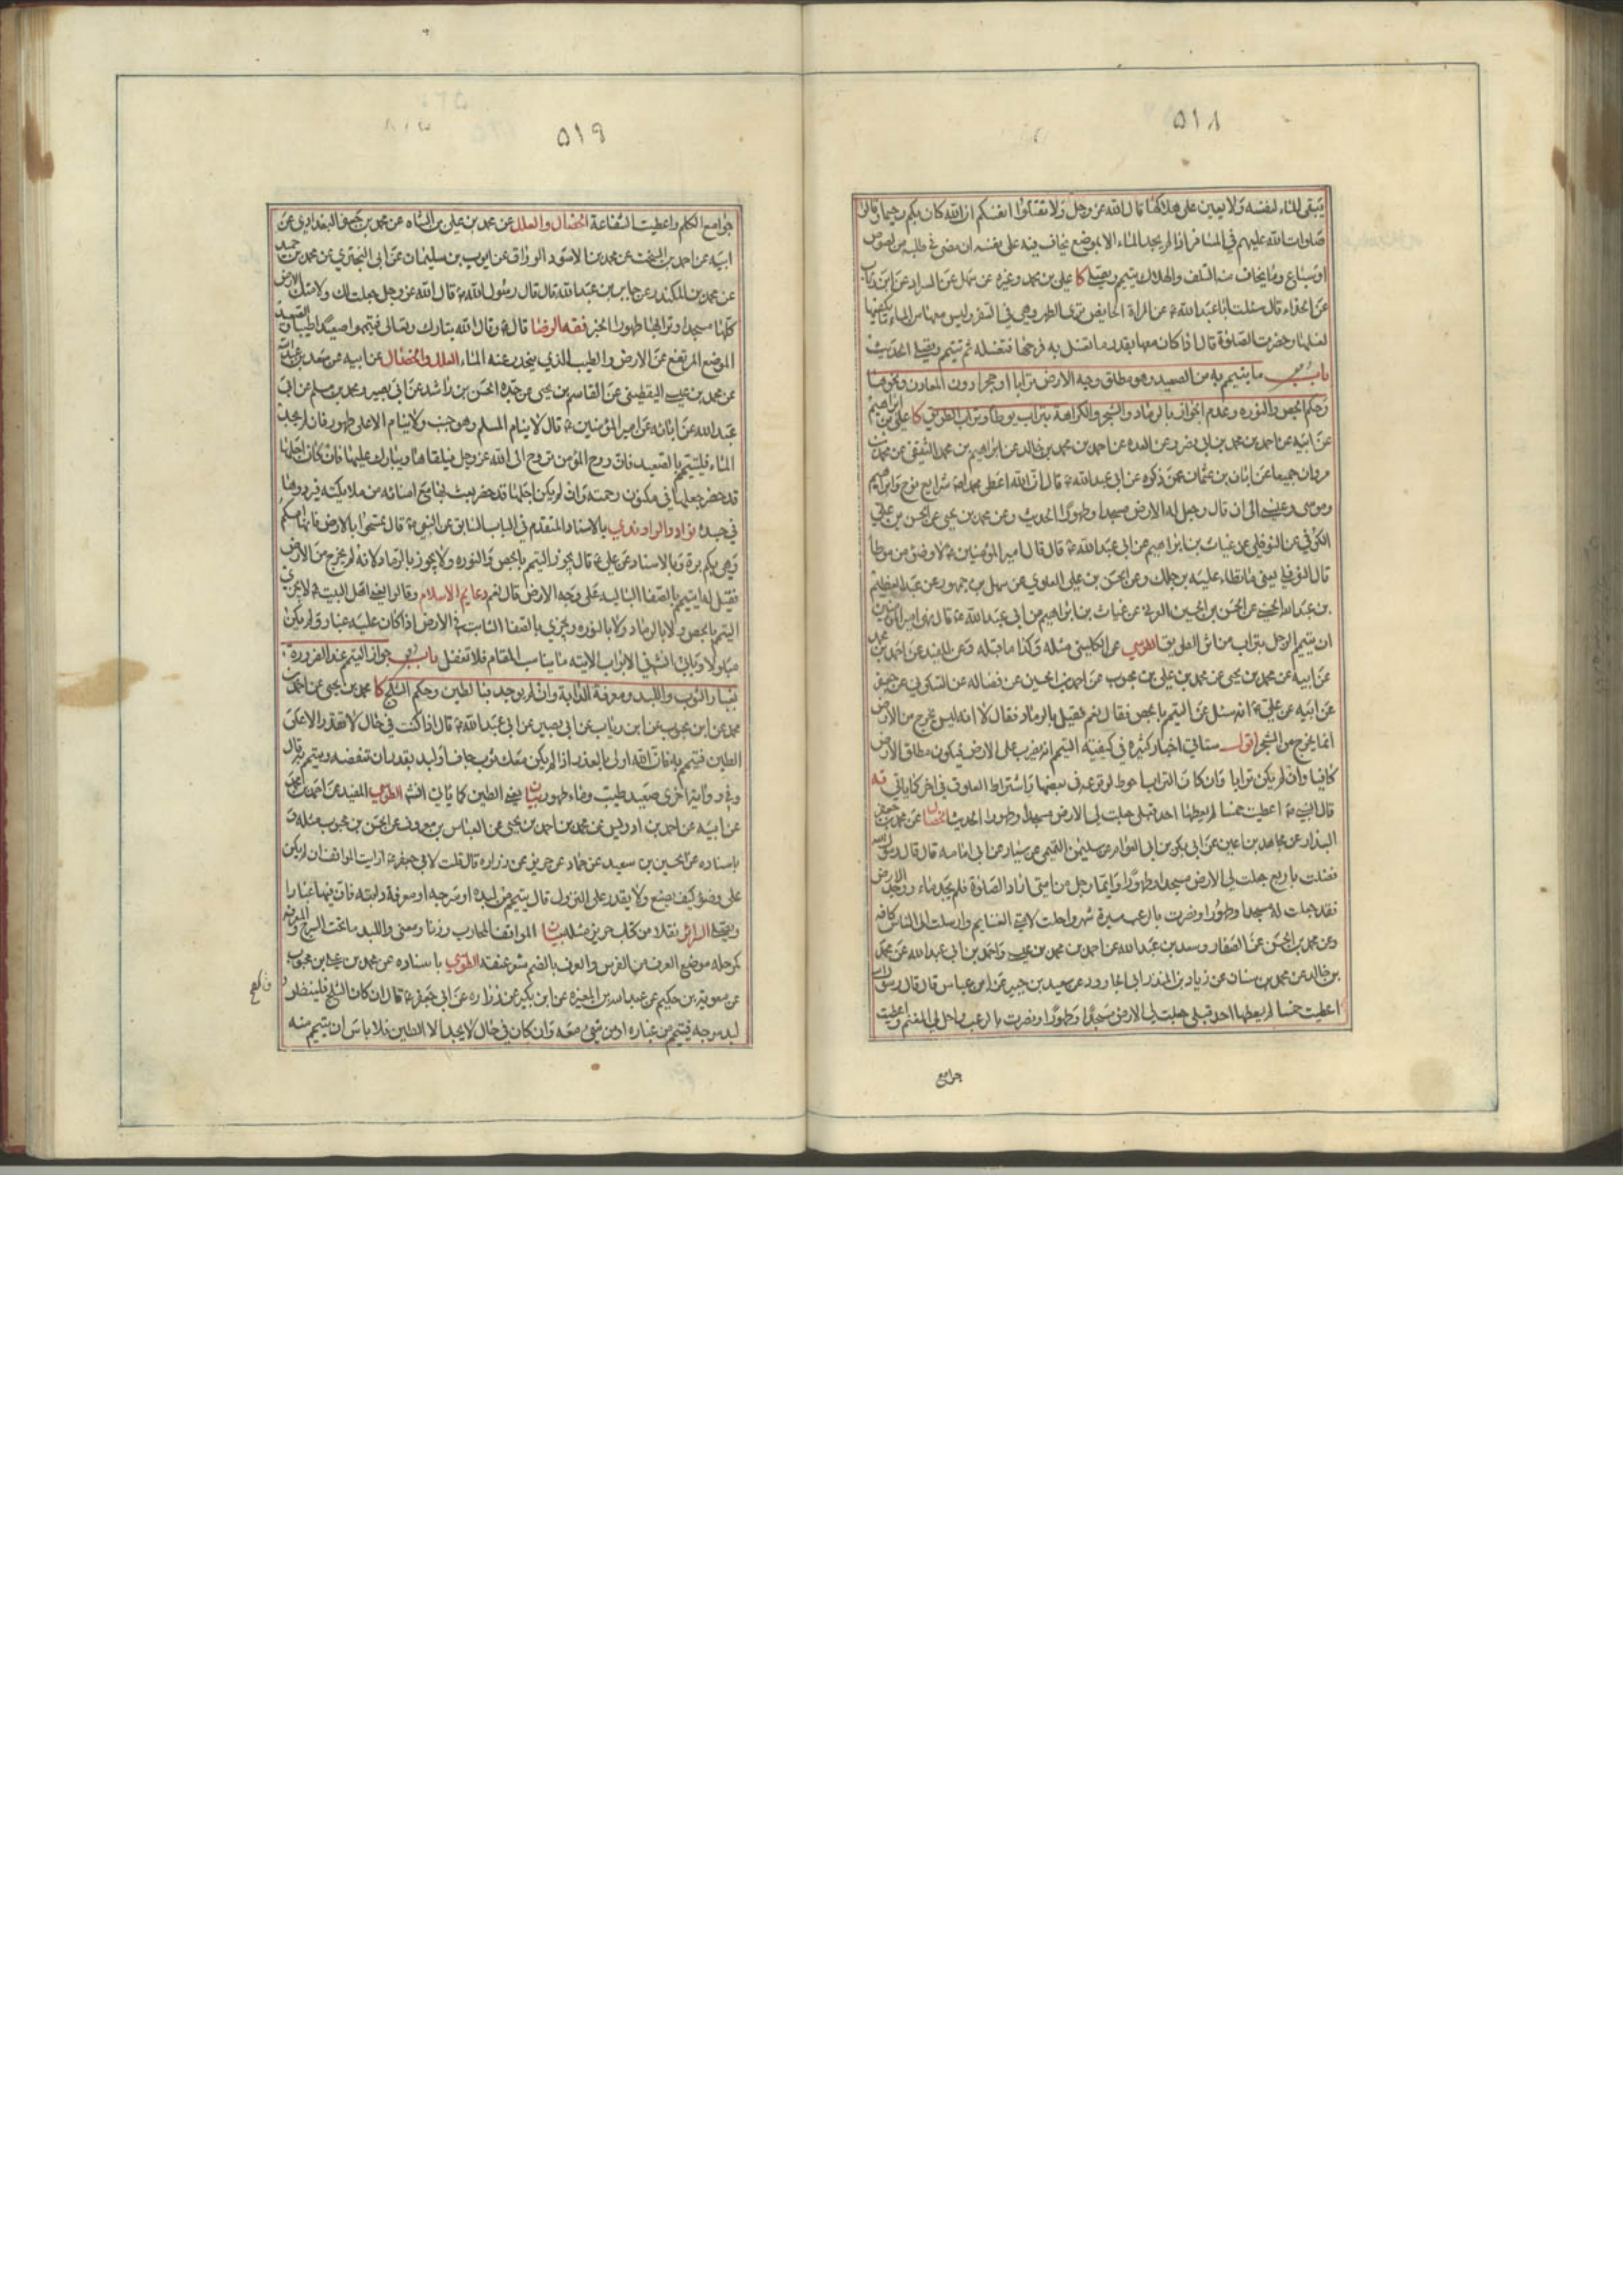 ٥١٨
يتبقى الماء لنفسه ولا يعين على هلاكها قال الله عز وجل ولا تقتلوا انفسكم ان الله كان بكم رحيما وقال
صلوات الله عليهم في المسافر اذا لم يجد الماء الا بموضع يخاف فيه على نفسه ان مضى في طلبه من لصوص
او سباع وما يخاف منه التلف والهلاك يتيمم ويصلي كا علي بن محمد وغيره عن سهل عن السراد عن ابن رئاب
عن الحذاء قال سئلت ابا عبد الله ع عن المراة الحايض ترى الطهر وهي في السفر وليس معها من الماء ما يكفيها
لغسلها وحضرت الصلوة قال اذا كان معها بقدر ما تغسل به فرجها فتغسله ثم تتيمم وتصلي الحديث
باب ما يتيمم به من الصعيد وهو مطلق وجه الارض ترابا او حجرا دون المعادن ونحوها
وحكم الجص والنوره وعدم الجواز بالرماد والشجر والكراهة بتراب يوطأ وتراب الطريق كا علي بن ابراهيم
عن ابيه عن احمد بن محمد بن ابي نصر وعن العدة عن احمد بن محمد بن خالد عن ابراهيم بن محمد الثقفي عن محمد بن
مروان جميعا عن ابان بن عثمان عمن ذكره عن ابي عبد الله ع قال ان الله اعطى محمدا ص شرايع نوح وابراهيم
وموسى وعيسى الى ان قال وجعل له الارض مسجدا وطهورا الحديث وعن محمد بن يحيى عن الحسن بن علي
الكوفي عن النوفلي عن غياث بن ابراهيم عن ابي عبد الله ع قال قال امير المؤمنين ع لا وضوء من موطأ
قال النوفلي يعني ما تطاء عليه برجلك وعن الحسن بن علي العلوي عن سهل بن جمهور عن عبد العظيم
بن عبد الله الحسني عن الحسن بن الحسين العرني عن غياث بن ابراهيم عن ابي عبد الله ع قال نهى امير المؤمنين
ان يتيمم الرجل بتراب من اثر الطريق الطوسي عن الكليني مثله وكذا ما قبله وعن المفيد عن احمد بن محمد
عن ابيه عن محمد بن يحيى عن محمد بن علي بن محبوب عن احمد بن الحسين عن فضاله عن السكوني عن جعفر
عن ابيه عن علي ع انه سئل عن التيمم بالجص فقال نعم فقيل بالرماد فقال لا انه ليس يخرج من الارض
انما يخرج من الشجر اقول ستاتي اخبار كثيره في كيفيته التيمم انه يضرب على الارض فيكون مطلق الارض
كافيا وان لم يكن ترابا وان كان التراب احوط لوقوعه في بعضها واشتراط العلوق في اخر كما ياتي فه
قال النبي ص اعطيت خمسا لم يعطها احد قبلي جعلت لي الارض مسجدا وطهورا الحديث الخصال عن محمد بن جعفر
البندار عن مجاهد بن اعين عن ابي بكر بن ابي العوام عن سليمن التيمي عن سيار عن ابي امامه قال قال رسول الله
فضلت باربع جعلت لي الارض مسجدا وطهورا وايما رجل من امتي اراد الصلوة فلم يجد ماء ووجد الارض
فقد جعلت له مسجدا وطهورا ونصرت بالرعب مسيرة شهر واحلت لامتي الغنايم وارسلت الى الناس كافه
وعن محمد بن الحسن عن الصفار وسعد بن عبد الله عن احمد بن محمد بن عيسى واحمد بن ابي عبد الله عن محمد
بن خالد عن محمد بن سنان عن زياد بن المنذر ابي الجارود عن سعيد بن جبير عن ابن عباس قال قال رسول الله
اعطيت خمسا لم يعطها احد قبلي جعلت لي الارض مسجدا وطهورا ونصرت بالرعب واحل لي المغنم واعطيت
جوامع
٥١٩
جوامع الكلم واعطيت الشفاعة الخصال والعلل عن محمد بن علي بن الشاه عن محمد بن جعفر البغدادي عن
ابيه عن احمد بن السخت عن محمد بن الاسود الوراق عن ايوب بن سليمان عن ابي البختري عن محمد بن حميد
عن محمد بن المنكدر عن جابر بن عبد الله قال قال رسول الله ص قال الله عز وجل جعلت لك ولامتك الارض
كلها مسجدا وترابها طهورا الخبر فقه الرضا قال ع وقال الله تبارك وتعالى فتيمموا صعيدا طيبا والصعيد
الموضع المرتفع عن الارض والطيب الذي ينحدر عنه الماء العلل والخصال عن ابيه عن سعد بن عبد الله
عن محمد بن عيسى اليقطيني عن القاسم بن يحيى عن جده الحسن بن راشد عن ابي بصير ومحمد بن مسلم عن ابي
عبد الله عن ابائه عن امير المؤمنين ع قال لا ينام المسلم وهو جنب ولا ينام الا على طهور فان لم يجد
الماء فليتيمم بالصعيد فان روح المؤمن تروح الى الله عز وجل فيلقاها ويبارك عليها فان كان اجلها
قد حضر جعلها في مكنون رحمته وان لم يكن اجلها قد حضر بعث بها مع امنائه من ملايكته فيردوها
في جسده نوادر الراوندي بالاسناد المتقدم في الباب السابق عن النبي ص قال تمسحوا بالارض فانها امكم
وهي بكم برة وبالاسناد عن علي ع قال يجوز التيمم بالجص والنوره ولا يجوز بالرماد لانه لم يخرج من الارض
فقيل له ايتيمم بالصفا البالية على وجه الارض قال نعم دعايم الاسلام وقالوا يعني اهل البيت ع لا يجزي
التيمم بالجص ولا بالرماد ولا بالنوره ويجزي بالصفا الثابت في الارض اذا كان عليه غبار ولم يكن
مبلولا وياتي انش في الابواب الاتيه ما يناسب المقام فلا تغفل باب جواز التيمم عند الضرورة
بغبار الثوب واللبد ومعرفة الدابة وان لم يوجد بالطين وحكم الثلج كا محمد بن يحيى عن احمد بن
محمد عن ابن محبوب عن ابن رياب عن ابي بصير عن ابي عبد الله ع قال اذا كنت في حال لا تقدر الا على
الطين فتيمم به فان الله اولى بالعذر اذا لم يكن معك ثوب جاف او لبد بقدر ان تنفضه وتيمم به قال
وفي رواية اخرى صعيد طيب وماء طهور بيان يعني الطين كما ياتي انش الطوسي المفيد عن احمد بن محمد
عن ابيه عن احمد بن ادريس عن محمد بن احمد بن يحيى عن العباس بن معروف عن الحسن بن محبوب مثله و
باسناده عن الحسين بن سعيد عن حماد عن حريز عن زراره قال قلت لابي جعفر ع ارايت المواقف ان لم يكن
على وضوء كيف يصنع ولا يقدر على النزول قال يتيمم من لبده او سرجه او معرفة دابته فان فيها غبارا
ويصلي السرائر نقلا من كتاب حريز مثله بيان المواقف المحارب وزنا ومعنى واللبد ما تحت السرج والمعرفه
كمرحله موضع العرف من الفرس والعرف بالضم شعر عنقه الطوسي باسناده عن محمد بن علي بن محبوب
عن معوية بن حكيم عن عبد الله بن المغيره عن ابن بكير عن زراره عن ابي جعفر ع قال ان كان الثلج فلينظر
لبد سرجه فيتيمم من غباره او من شيء معه وان كان في حال لا يجد الا الطين فلا باس ان يتيمم منه